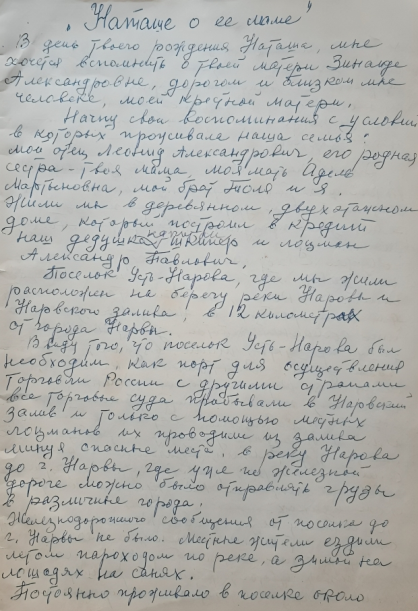 „Наташе о ее маме"
В день твоего рождения Наташа, мне
хочется вспомнить о твоей матери Зинаиде
Александровне, дорогом и близком мне
человеке, моей крестной матери.
Начну свои воспоминания с условий
в которых проживала наша семья:
мой отец Леонид Александрович, его родная
сестра - твоя мама, моя мать Адель
Мартыновна, мой брат Толя и я.
Жили мы в деревянном, двухэтажном
доме, который построил в кредит
наш дедушка, шкипер и лоцман
Александр Павлович.
Поселок Усть-Нарова, где мы жили
расположен на берегу реки Наровы и
Нарвского залива, в 12 километрах
от города Нарвы.
Ввиду того, что поселок Усть-Нарова был
необходим, как порт для осуществления
торговли России с другими странами
все торговые суда прибывали в Нарвский
залив и только с помощью местных
лоцманов их проводили из залива
минуя опасные места, в реку Нарова
до г. Нарвы, где уже по железной
дороге можно было отправлять грузы
в различные города.
Железнодорожного сообщения от поселка до
г. Нарвы не было. Местные жители ездили
летом пароходом по реке, а зимой на
лошадях на санях.
Постоянно проживало в поселке около